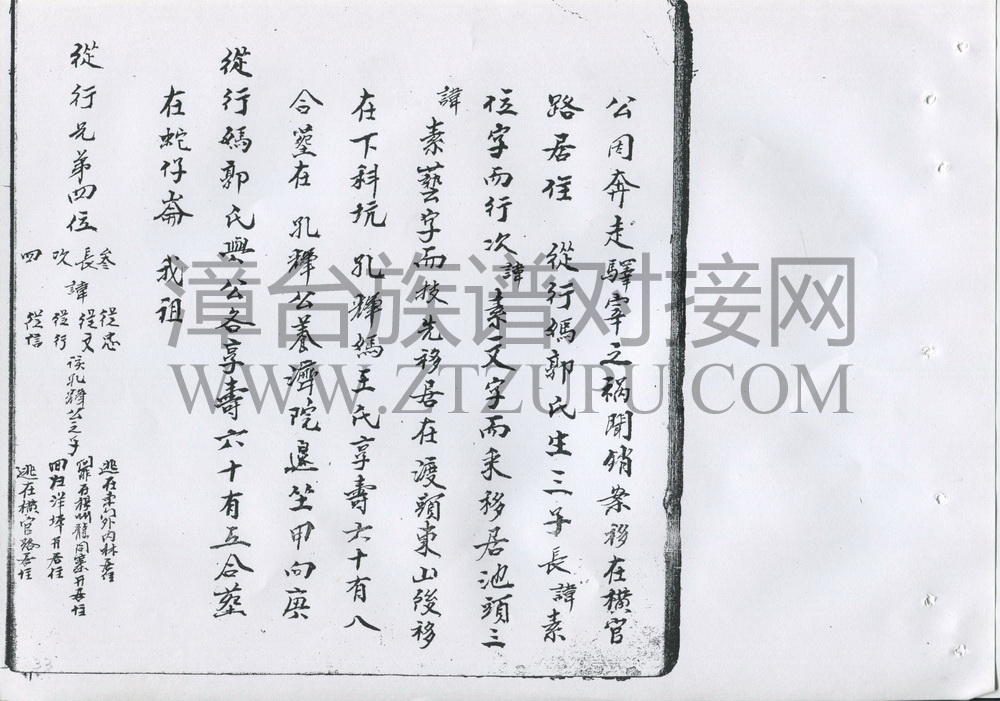 公因奔走驛宰之禍聞銷案移在橫官
路居住 從行媽郭氏生三子長諱素
位字而行次諱素文字而釆移居池頭三
諱素藝字而技先移居在渡頭東山後移
在下科坑 孔輝媽王氏享壽六十有八
合塟在 孔輝公養濟院邊坐甲向庚
從行媽郭氏與公各享壽六十有五合塟
在蛇仔崙 我祖
從行兄弟四位
叁 從忠 逃在東門外內林居住
長諱從文 孔輝公之子
次 從行 回歸洋埔居住
四 從信 逃在橫官路居住
漳台族谱对接网
WWW.ZTZUPU.COM
33